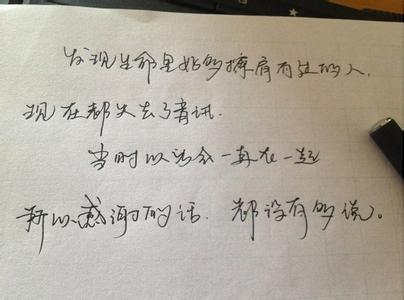 发现生命里好多擦肩而过的人,
现在都失去了音讯.
当时以为会一直在一起
所以感谢的话. 都没有多说。